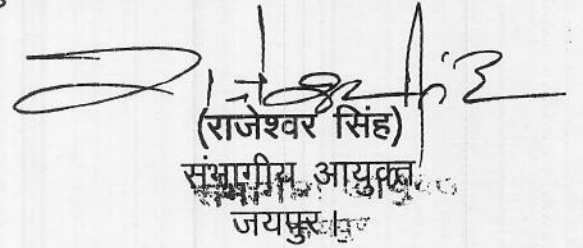 (राजेश्वर सिंह)
संभागीय आयुक्त
जयपुर।